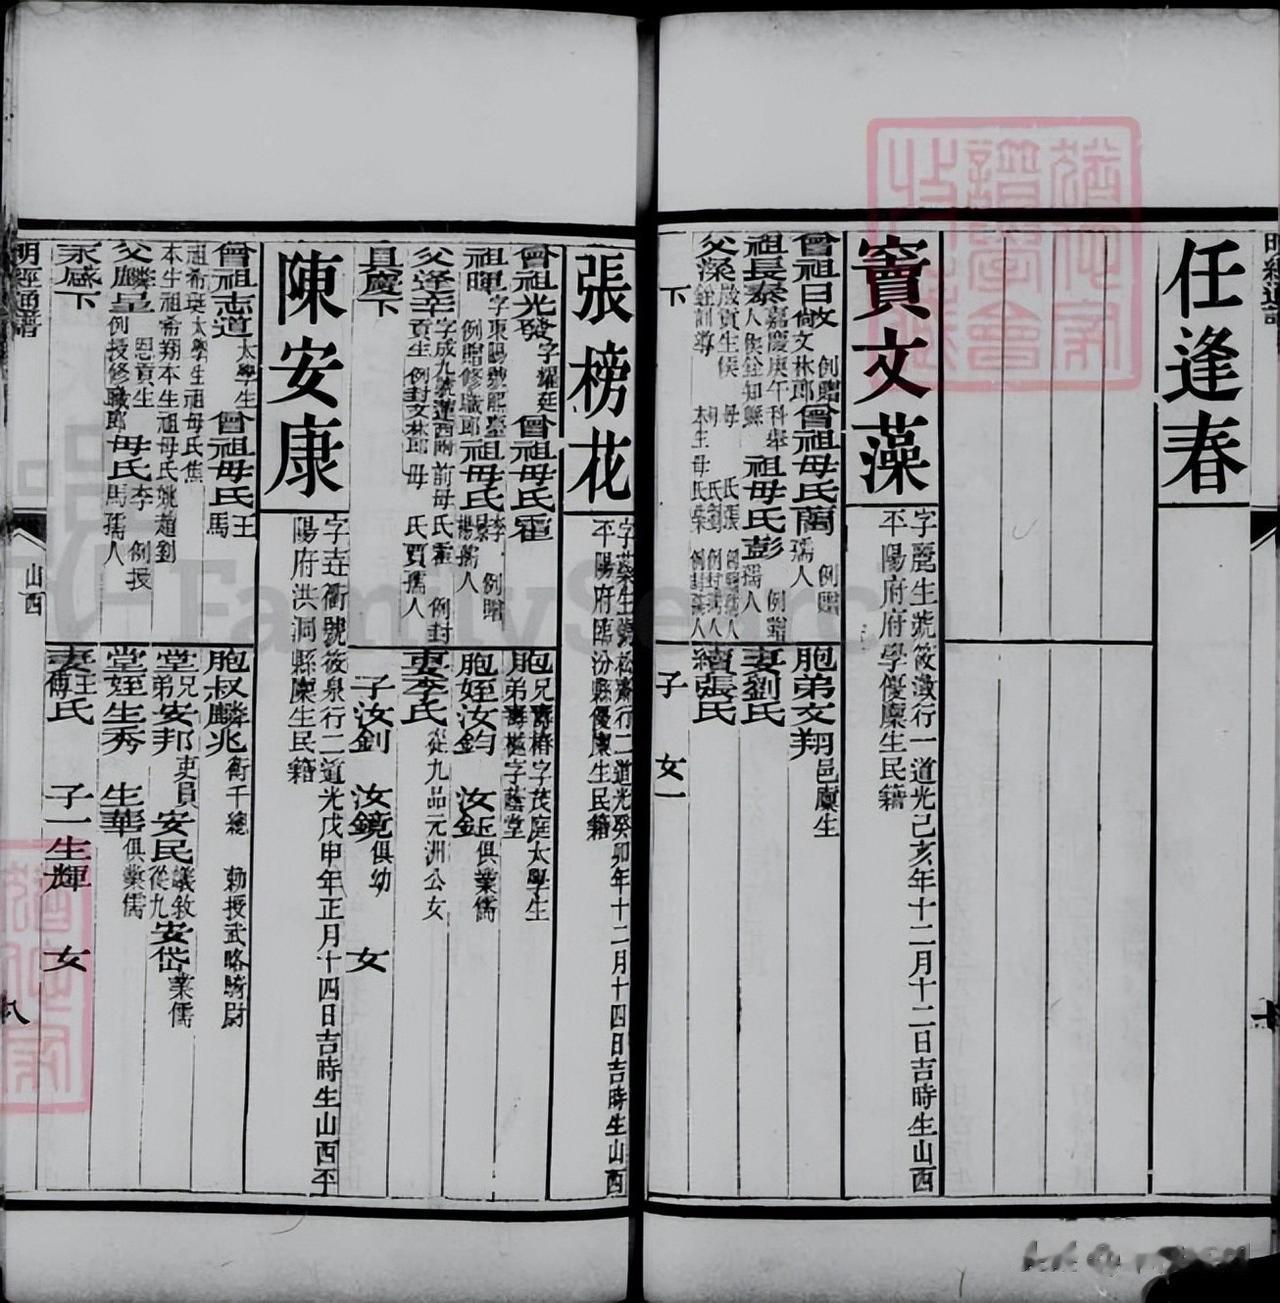 任逢春
竇文藻
字麗生號筱瀓行一道光己亥年十二月十二日吉時生山西
平陽府府學優廩生民籍
曾祖日攸 文林郎 例贈 曾祖母氏蘭 例贈孺人
祖長泰 嘉慶庚午科舉人候銓知縣 祖母氏彭 例贈孺人
父深 歲貢生候銓訓導 母氏張 例贈孺人 氏劉 例封孺人 本生母氏柴 例封孺人
下
胞弟文翔 邑廩生
妻劉氏
續張氏
子 女一
張榜花
字蘂生號松齋行二道光癸卯年十二月十四日吉時生山西
平陽府臨汾縣優廩生民籍
曾祖光發 字耀廷 曾祖母氏霍
祖暉 字東陽號熙臺 例贈修職郎 祖母氏李 楊 例贈孺人
父逢辛 字成九號蓮西 貢生 例封文林郎 前母氏霍 母氏賈 例封孺人
具慶下
胞兄壽椿 字茂庭太學生
弟壽樾 字蔭堂
胞姪汝鈞 汝鈺 俱業儒
妻李氏 從九品元洲公女
子汝釗 汝鏡 俱幼 女
陳安康
字莊衢號筱泉行二道光戊申年正月十四日吉時生山西平
陽府洪洞縣廩生民籍
曾祖志道 太學生 曾祖母氏王 馬
祖希珽 太學生 祖母氏焦
本生祖希翔 本生祖母氏姚 趙 劉
父麟呈 恩貢生 例授修職郎 母氏李 馬 例授孺人
永感下
胞叔麟兆 衛千總 勅授武略騎尉
堂兄安邦 吏員 安民 議敘從九 安岱 業儒
弟
堂姪生秀 生華 俱業儒
妻汪氏 傅 子一生輝 女
明經通譜
山西
八